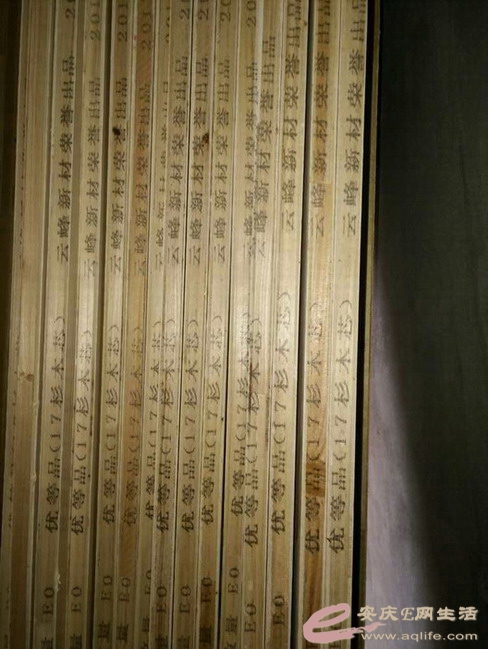 量 E0 优等品(17杉木芯) 云峰新材荣誉出品 201
量 E0 优等品(17杉木芯) 云峰新材荣誉出品 201
量 E0 优等品(17杉木芯) 云峰新材荣誉出品 201
E0 优等品(17杉木芯) 云峰新材荣誉出品
量 E0 优等品(17杉木芯) 云峰新 荣誉出品
量 E0 优等品(17杉木芯) 云峰新材荣誉出品
量 E0 优等品(17杉木芯) 云峰新材荣誉出品
E0 优等品(17杉木芯) 云峰新材荣誉出品
量 E0 优等品(17杉木芯) 云峰新材荣誉出品
E0 优等品(17杉木芯) 云峰新材荣誉出品
优等品(17杉木芯) 云峰新材荣誉出品
优等品(17杉木芯) 云峰新材荣誉出品
优等品(17杉木芯) 云峰新材荣誉出品
安庆E网生活
www.aqlife.com